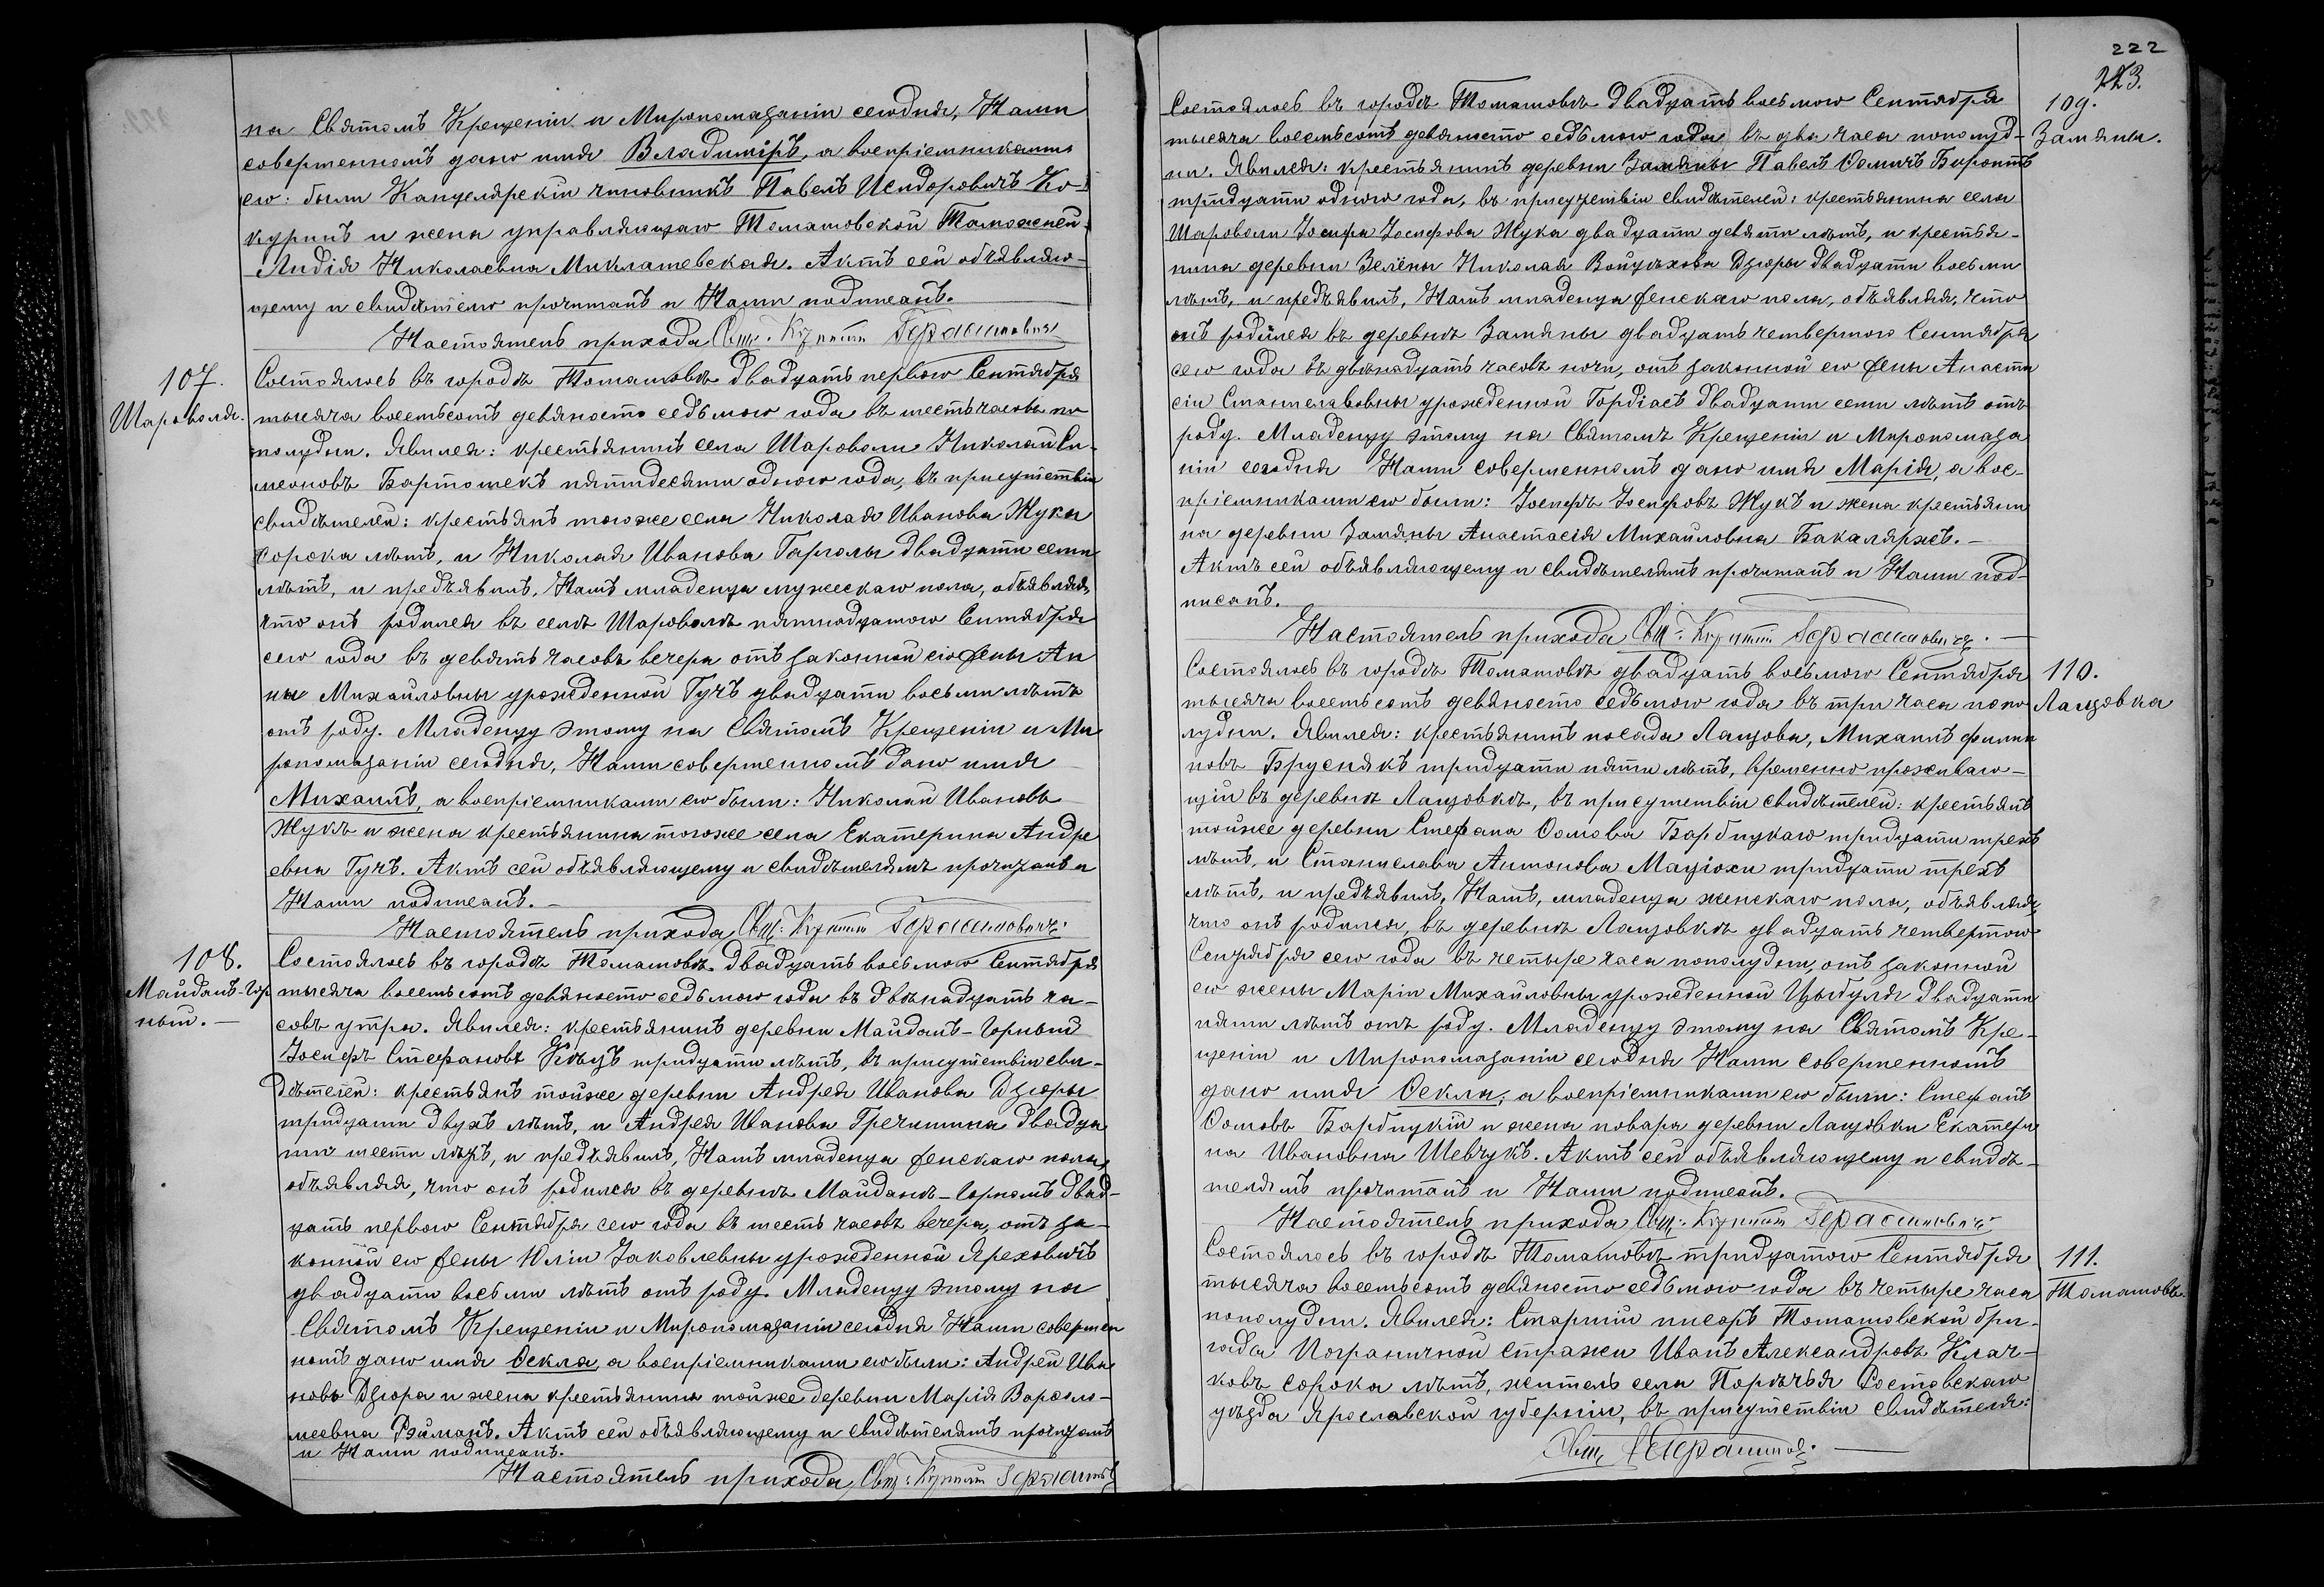 на Святомъ Крещеніи и Миропомазаніи сегодня, Нами
совершенномъ дано имя Владиміръ, а воспріемниками
его: были Канцелярскій чиновникъ Павелъ Исидоровичъ Ко-
куринъ и жена управляющаго Томашовской Таможней
Лидія Николаевна Миклашевская. Актъ сей объявляю-
щему и свидѣтелю прочитанъ и Нами подписанъ.
Настоятель прихода Свщ. Герасимовичъ
107.
Шароволя.
Состоялось въ городѣ Томашовѣ двадцать перваго Сентября
тысяча восемьсотъ девяносто седьмого года въ шесть часовъ по
полудни. Явился: крестьянинъ села Шароволи Николай Си-
меоновъ Бартошекъ пятидесяти одного года, въ присутствіи
свидѣтелей: крестьянъ тогоже села Николая Иванова Жука
сорока лѣтъ, и Николая Иванова Гарголы двадцати семи
лѣтъ, и предъявилъ, Намъ младенца мужескаго пола, объявляя,
что онъ родился въ селѣ Шароволѣ пятнадцатого Сентября
сего года въ девять часовъ вечера отъ законной его жены Ан
ны Михайловны урожденной Гучъ двадцати восьми лѣтъ
отъ роду. Младенцу этому на Святомъ Крещеніи и Ми
ропомазаніи сегодня, Нами совершенномъ дано имя
Михаилъ, а воспріемниками его были: Николай Ивановъ
Жукъ и жена крестьянина тогоже села Екатерина Андре
евна Гучъ. Актъ сей объявляющему и свидѣтелямъ прочитанъ и
Нами подписанъ.
Настоятель прихода Свщ. Герасимовичъ
108.
Майданъ-Гор
ный.
Состоялось въ городѣ Томашовѣ двадцать восьмого Сентября
тысяча восемьсотъ девяносто седьмого года въ двѣнадцать ча-
совъ утра. Явился: крестьянинъ деревни Майданъ-Горный
Іосифъ Стефановъ тридцати лѣтъ, въ присутствіи сви-
дѣтелей: крестьянъ тойже деревни Андрея Иванова Дзюры
тридцати двухъ лѣтъ, и Андрея Иванова Гречишина двадца
ти шести лѣтъ, и предъявилъ, Намъ младенца женскаго пола,
объявляя, что онъ родился въ деревнѣ Майданѣ-Горномъ двад-
цать перваго Сентября сего года въ шесть часовъ вечера, отъ за-
конной его жены Юліи Яковлевны урожденной Яреховичъ
двадцати восьми лѣтъ отъ роду. Младенцу этому на
Святомъ Крещеніи и Миропомазаніи сегодня Нами совершен
номъ дано имя Ѳекла, а воспріемниками его были: Андрей Ива
новъ Дзюра и жена крестьянина тойже деревни Марія Варѳоло-
меевна Рэйманъ. Актъ сей объявляющему и свидѣтелямъ прочитанъ
и Нами подписанъ.
Настоятель прихода, Свщ. Герасимовичъ
222
223.
109.
Замяны.
Состоялось въ городѣ Томашовѣ двадцать восьмого Сентября
тысяча восемьсотъ девяносто седьмого года въ два часа пополуд-
ни. Явился: крестьянинъ деревни Замяны Павелъ Ѳомичъ Биронтъ
тридцати одного года, въ присутствіи свидѣтелей: крестьянина села
Шароволи Іосифа Іосифова Жука двадцати девяти лѣтъ, и крестья-
нина деревни Зелёны Николая Войцѣхова Дзюры двадцати восьми
лѣтъ, и предъявилъ, Намъ младенца женскаго пола, объявляя, что
онъ родился въ деревнѣ Замяны двадцать четвертого Сентября
сего года въ двѣнадцать часовъ ночи, отъ законной его жены Анаста
сіи Станиславовны урожденной Гордіасъ двадцати семи лѣтъ отъ
роду. Младенцу этому на Святомъ Крещеніи и Миропомаза
ніи сегодня Нами совершенномъ дано имя Марія, а вос-
пріемниками его были: Іосифъ Іосифовъ Жукъ и жена крестьяни
на деревни Замяны Анастасія Михайловна Бакаляржъ.
Актъ сей объявляющему и свидѣтелямъ прочитанъ и Нами под-
писанъ.
Настоятель прихода Свщ. Герасимовичъ.
110.
Лащовка
Состоялось въ городѣ Томашовѣ двадцать восьмого Сентября
тысяча восемьсотъ девяносто седьмого года въ три часа попо
лудни. Явился: крестьянинъ посада Лащова, Михаилъ Филип
повъ Бруснякъ тридцати пяти лѣтъ, временно проживаю-
щій въ деревнѣ Лащовкѣ, въ присутствіи свидѣтелей: крестьянъ
тойже деревни Стефана Ѳомова Барбицкаго тридцати трехъ
лѣтъ, и Станислава Антонова Маціохи тридцати трехъ
лѣтъ, и предъявилъ, Намъ, младенца женскаго пола, объявляя,
что онъ родился, въ деревнѣ Лащовкѣ двадцать четвертого
Сентября сего года въ четыре часа пополудни, отъ законной
его жены Маріи Михайловны урожденной Цыбуля двадцати
пяти лѣтъ отъ роду. Младенцу этому на Святомъ Кре-
щеніи и Миропомазаніи сегодня Нами совершенномъ
дано имя Ѳекла, а воспріемниками его были: Стефанъ
Ѳомовъ Барбицкій и жена повара деревни Лащовки Екатери
на Ивановна Шевчукъ. Актъ сей объявляющему и свидѣ-
телямъ прочитанъ и Нами подписанъ.
Настоятель прихода Свщ. Герасимовичъ
111.
Томашовъ.
Состоялось въ городѣ Томашовѣ тридцатого Сентября
тысяча восемьсотъ девяносто седьмого года въ четыре часа
пополудни. Явился: Старшій писарь Томашовской бри-
гады Пограничной стражи Иванъ Александровъ Клач-
ковъ сорока лѣтъ, житель села Порѣчья Ростовскаго
уѣзда Ярославской губерніи, въ присутствіи свидѣтеля:
Свщ.